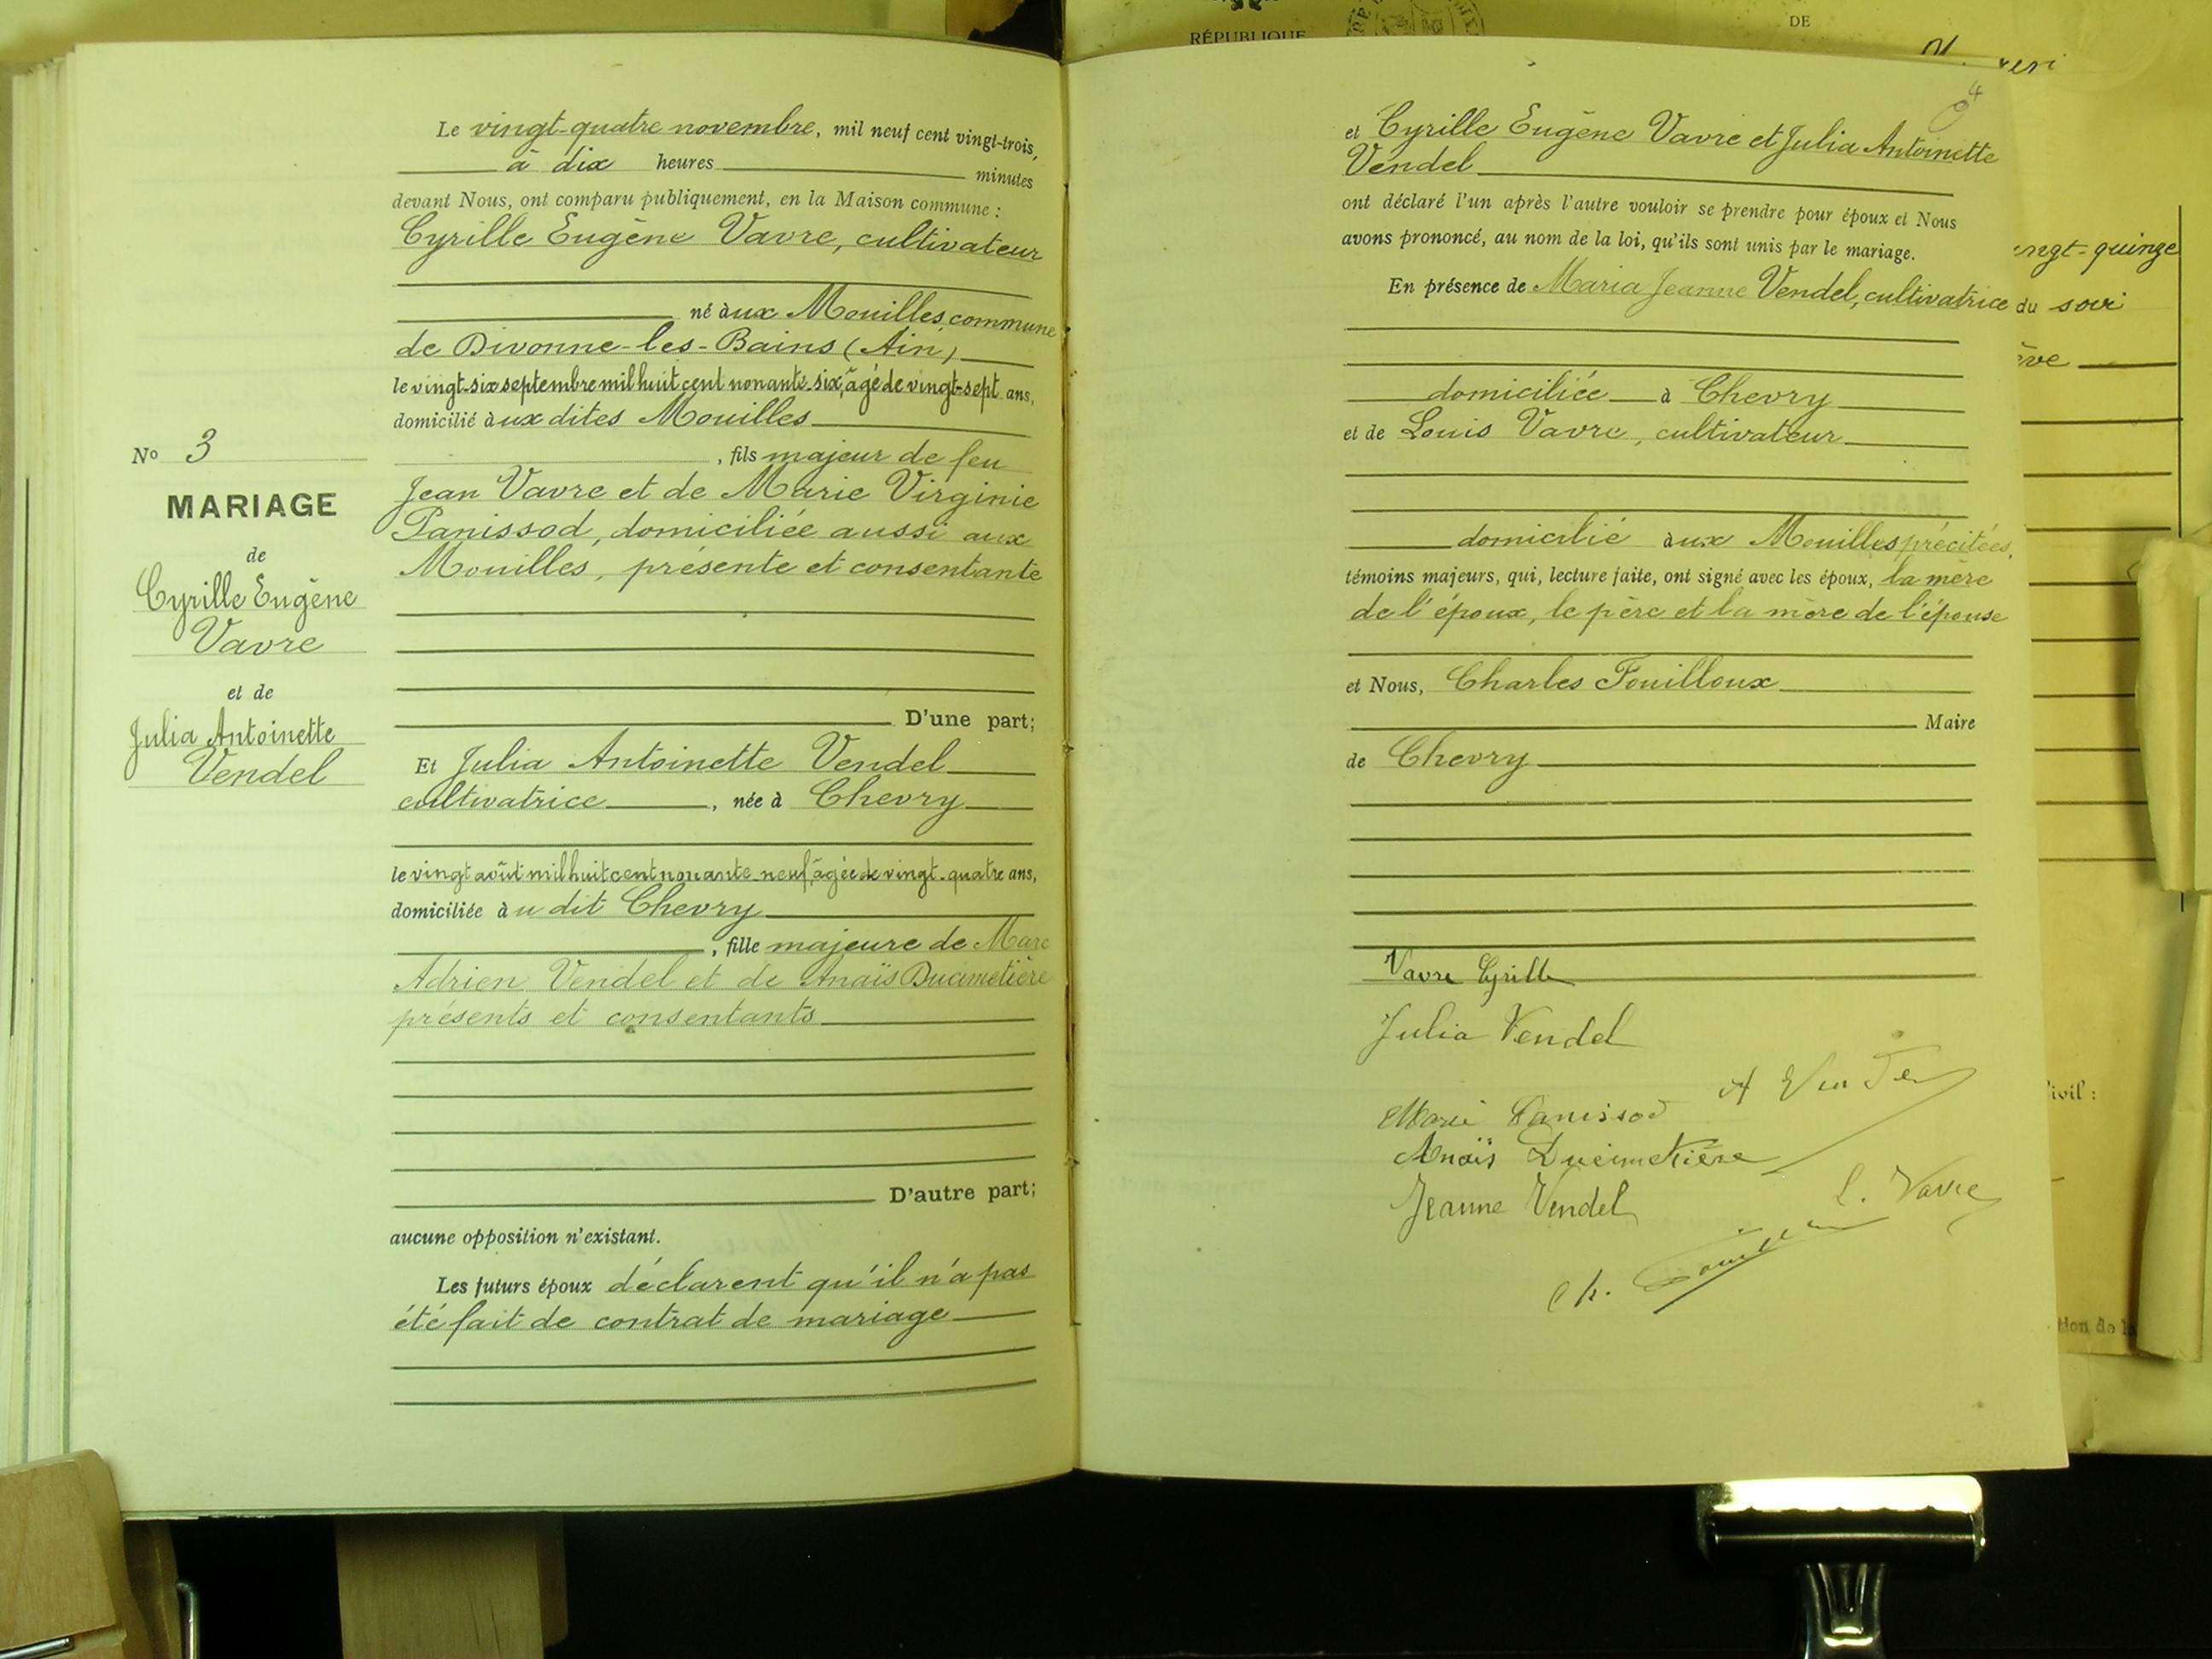 No 3
MARIAGE
de
Cyrille Eugène
Vavre
et de
Julia Antoinette
Vendel
Le vingt-quatre novembre, mil neuf cent vingt-trois,
à dix heures minutes
devant Nous, ont comparu publiquement, en la Maison commune :
Cyrille Eugène Vavre, cultivateur
né aux Mouilles, commune
de Divonne-les-Bains (Ain)
le vingt-six septembre mil huit cent nonante-six, âgé de vingt-sept ans,
domicilié aux dites Mouilles
, fils majeur de feu
Jean Vavre et de Marie Virginie
Panissod, domiciliée aussi aux
Mouilles, présente et consentante
D'une part;
Et Julia Antoinette Vendel
cultivatrice , née à Chevry
le vingt août mil huit cent nonante-neuf, âgée de vingt-quatre ans,
domiciliée au dit Chevry
, fille majeure de Marc
Adrien Vendel et de Anaïs Ducimetière
présents et consentants
D'autre part;
aucune opposition n'existant.
Les futurs époux déclarent qu'il n'a pas
été fait de contrat de mariage
4
et Cyrille Eugène Vavre et Julia Antoinette
Vendel
ont déclaré l'un après l'autre vouloir se prendre pour époux et Nous
avons prononcé, au nom de la loi, qu'ils sont unis par le mariage.
En présence de Maria Jeanne Vendel, cultivatrice
domiciliée à Chevry
et de Louis Vavre, cultivateur
domicilié aux Mouilles précitées,
témoins majeurs, qui, lecture faite, ont signé avec les époux, la mère
de l'époux, le père et la mère de l'épouse
et Nous, Charles Fouilloux
Maire
de Chevry
Vavre Cyrille
Julia Vendel
A Vendel
Marie Panissod
Anaïs Ducimetière
Jeanne Vendel
L. Vavre
Ch. Fouilloux
RÉPUBLIQUE
DE
ngt-quinze
du soir
ève
ivil :
tion de l